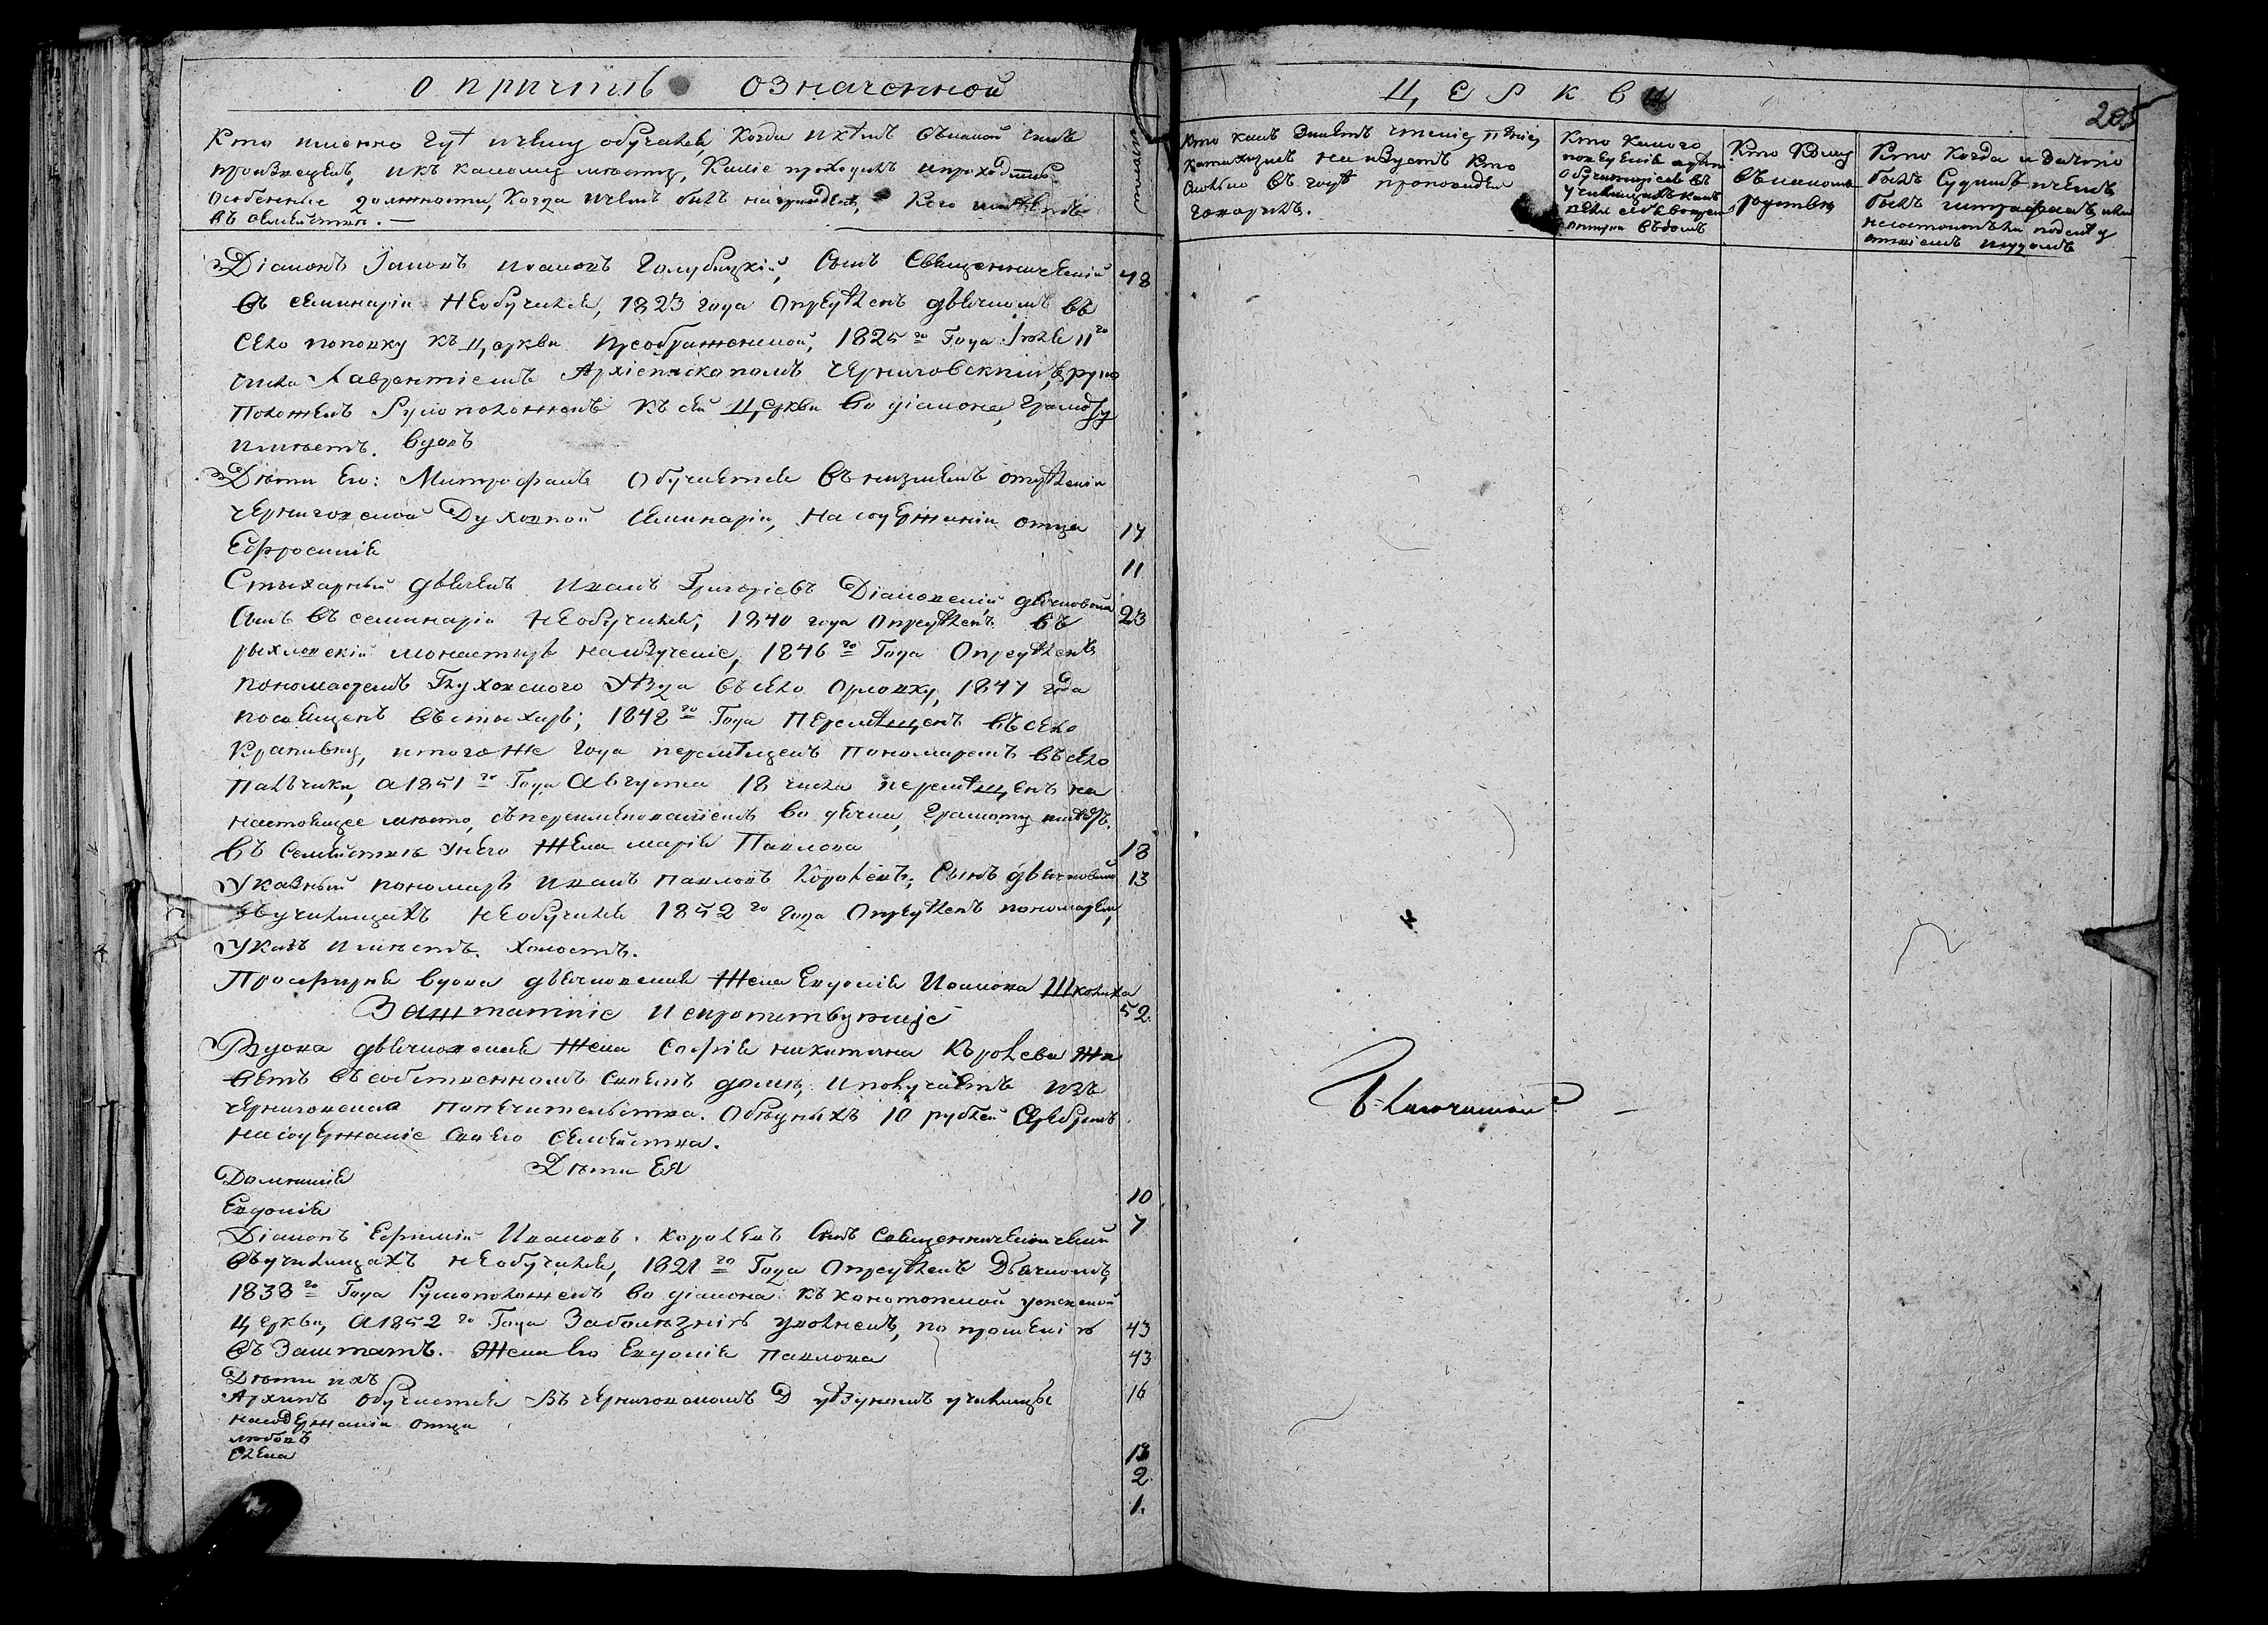 О причтѣ означенной
Кто именно гдѣ и чему обучался, когда и кѣмъ въ какой чинъ
произведенъ, и къ какому мѣсту, какіе проходилъ и проходитъ
особенные должности, когда и чемъ былъ награжденъ, Кого имѣетъ
въ семействѣ. —
лѣта
Діаконъ Іаковъ Ивановъ Голубицкій, Сынъ Священническій 48
въ семинаріи необучался, 1823 года Опредѣленъ дьячкомъ въ
село поповку къ церкви Преображенской, 1825го Года Іюля 11го
числа Лаврентіемъ Архіепископомъ Черниговскимъ, руко
положенъ Рукоположенъ къ сей Церкви во діакона, Грамоту
имѣетъ. Вдовъ
Дѣти его: Митрофанъ Обучается въ низшемъ отдѣленіи
Черниговской Духовной Семинаріи, на содержаніи отца 17
Ефросинія 11
Стихарный дьячекъ Иванъ Григоріевъ Діаконскій дьячковскій
Сынъ въ семинаріи необучался, 1840 года Опредѣленъ въ 23
рыхловскій монастырь на изученіе, 1846го Года Опредѣленъ
пономаремъ Глуховскаго Уѣзда въ село Орловку, 1847 года
посвященъ въ стихарь, 1848го Года Перемѣщенъ въ село
Крапивну, и того же года перемѣщенъ Пономаремъ въ село
Пальчики, а 1851го Года Августа 18 числа перемѣщенъ на
настоящее мѣсто, съ переименованіемъ во дьячки, Грамоту имѣетъ.
въ Семействѣ у него Жена марія Павлова 18
Указный пономарь Иванъ Павловъ Королевъ, Сынъ дьячковскій 13
въ училищахъ необучался 1852го года Опредѣленъ пономаремъ,
Указъ имѣетъ. Холостъ.
Просфирня вдова дьячковская Жена Евдокія Иоанова Школика
52
Заштатніе
Вдова дьячковская Жена Софія никитина Королева жи
ветъ въ собственномъ своемъ домѣ, и получаетъ изъ
Черниговскаго Попечительства Обѣдныхъ 10 рублей Серебромъ
на содержаніе своего Семейства.
Дѣти Ея
Домникія 10
Евдокія 7
Діаконъ Ефимій Ивановъ Королевъ Сынъ
въ училищахъ необучался, 1821го Года Опредѣленъ Дьячкомъ,
1838го Года Рукоположенъ во діакона къ конотопской успенской
церкви, а 1852го Года За болѣзнію уволненъ, по прошенію 43
въ Заштатъ. Жена его Евдокія павлова 43
Дѣти ихъ
Архипъ обучается въ черниговскомъ Д уѣздномъ училищѣ 16
на содержаніи отца
любовь 13
Елена 2
1.
ЦЕРКВИ
205
Кто какъ знаетъ чтеніе, пѣніе,
катихизисъ на изустъ Кто
сколько въ годъ проповѣдей
говорилъ.
Кто какого
поведенія и дѣти
обучающіеся въ
училищахъ какъ
Кто кому
въ какомъ
родствѣ
Кто когда и за что
былъ Судимъ и чемъ
былъ штрафованъ, или
несостоитъ ли подъ су
домъ